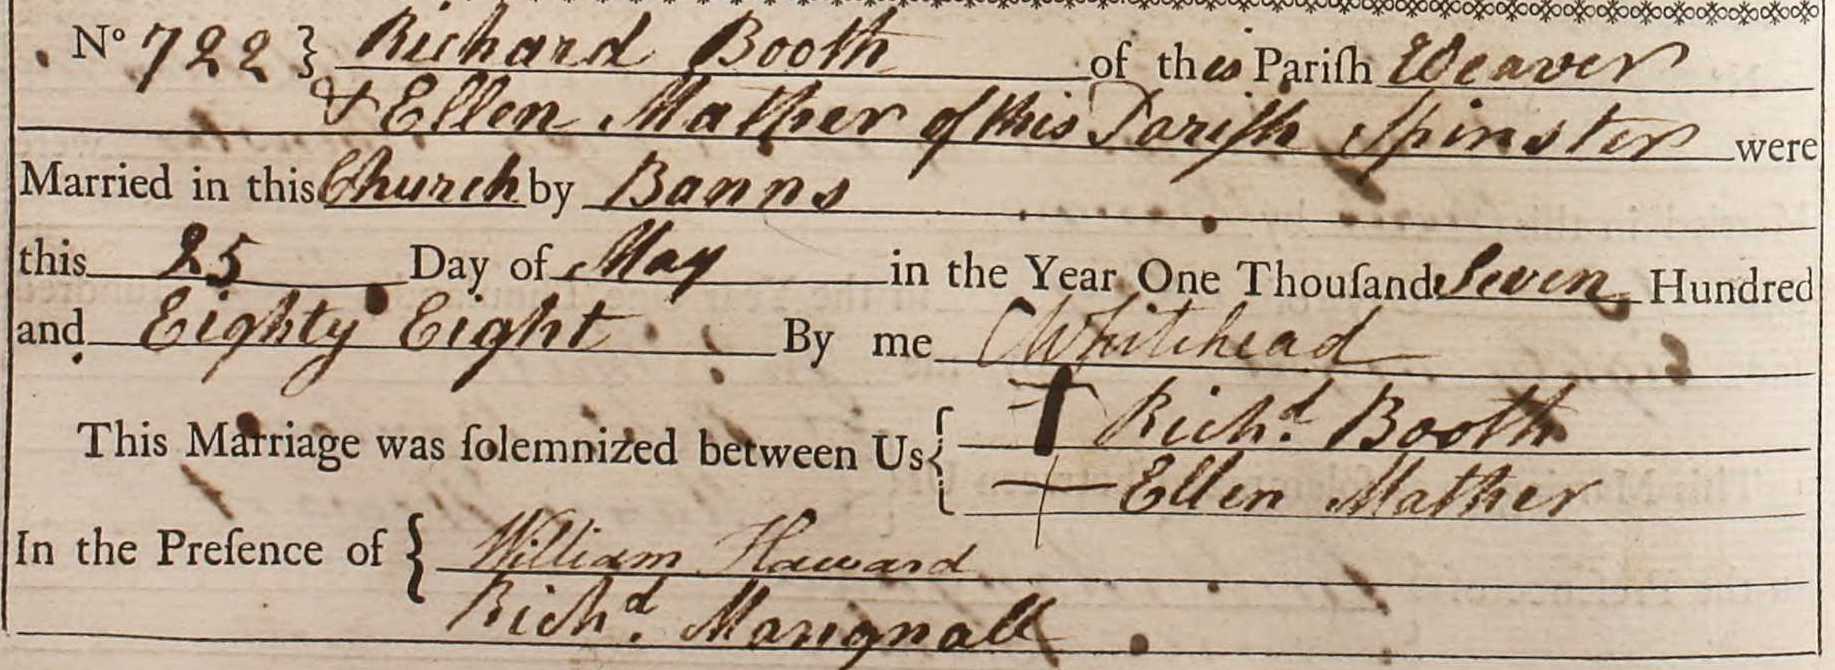 No 722 } Richard Booth of this Pariſh Weaver
& Ellen Mather of this Pariſh Spinster were
Married in this Church by Banns
this 25 Day of May in the Year One Thouſand Seven Hundred
and Eighty Eight By me Whitehead
This Marriage was ſolemnized between Us { Richd. Booth
Ellen Mather
In the Preſence of { William Haward
Richd. Marignall